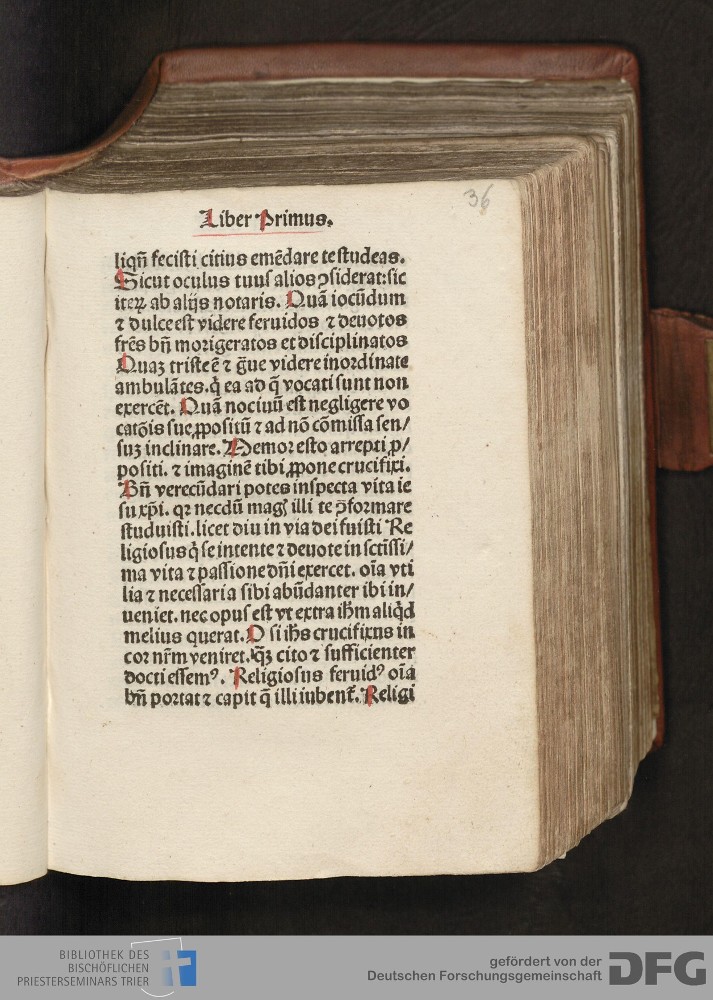 36
Liber Primus.
liqñ fecisti citius emēdare te studeas.
Sicut oculus tuus alios ꝯsiderat: sic
iteꝝ ab alijs notaris. Quā iocūdum
⁊ dulce est videre feruidos ⁊ deuotos
frēs bñ morigeratos et disciplinatos
Quaꝫ triste ē ⁊ g̃ue videre inordinate
ambulātes. q̇ ea ad q̄ vocati sunt non
exercēt. Quā nociuū est negligere vo
catōis sue ꝓpositū ⁊ ad nō cōmissa sen/
suꝫ inclinare. Memor esto arrepti ꝓ/
positi. ⁊ imaginē tibi ꝓpone crucifixi.
Bñ verecūdari potes inspecta vita ie
su xp̄i. qꝛ necdū magꝭ illi te ꝯformare
studuisti. licet diu in via dei fuisti Re
ligiosus q̇ se intente ⁊ deuote in sctīssi/
ma vita ⁊ passione dñi exercet. oīa vti
lia ⁊ necessaria sibi abūdanter ibi in/
ueniet. nec opus est vt extra ihm̄ aliq̇d
melius querat. O si ihs̄ crucifixus in
cor nr̄m veniret. ꝙꝫ cito ⁊ sufficienter
docti essemꝰ. Religiosus feruidꝰ oīa
bñ portat ⁊ capit q̄ illi iubent̃. Religi
BIBLIOTHEK DES
BISCHÖFLICHEN
PRIESTERSEMINARS TRIER
gefördert von der
Deutschen Forschungsgemeinschaft
DFG